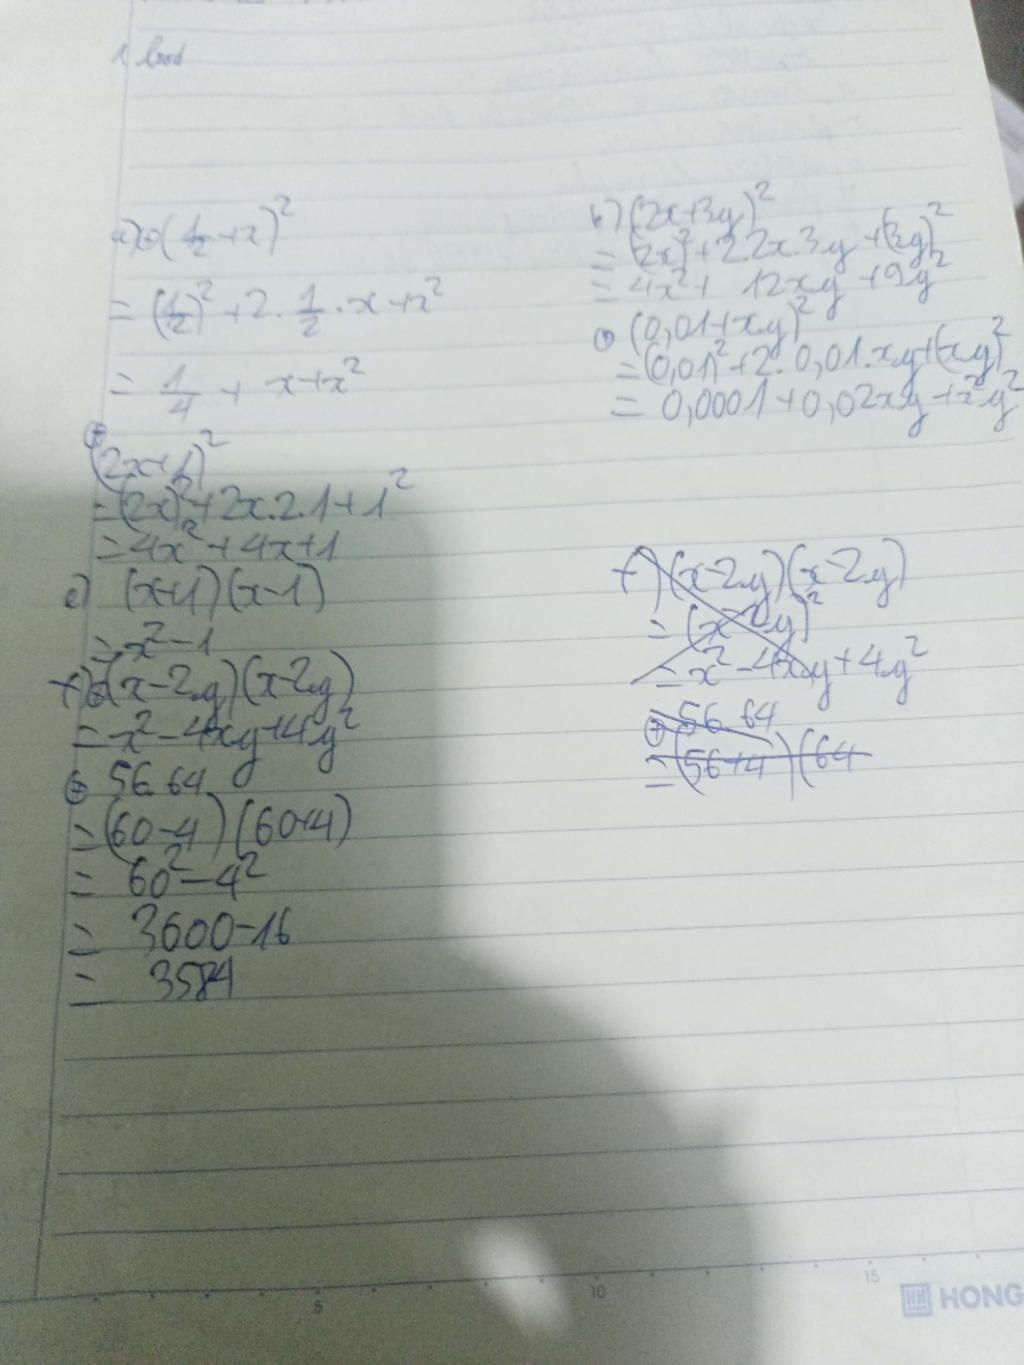 a) ⊕ (1/2 + x)²
= (1/2)² + 2 . 1/2 . x + x²
= 1/4 + x + x²
⊕
(2x+1)²
= (2x)² + 2x.2.1 + 1²
= 4x² + 4x + 1
e) (x+1)(x-1)
= x² - 1
f) ⊕ (x-2y)(x-2y)
= x² - 4xy + 4y²
⊕ 56.64
= (60-4)(60+4)
= 60² - 4²
= 3600-16
= 3584
b) (2x+3y)²
= (2x)² + 2.2x.3y + (3y)²
= 4x² + 12xy + 9y²
⊕ (0,01+xy)²
= (0,01)² + 2.0,01.xy + (xy)²
= 0,0001 + 0,02xy + x²y²
f) (x-2y)(x-2y)
= (x-2y)²
= x² - 4xy + 4y²
= 56.64
⊕
= (56+4)(64
5
10
15
HONG